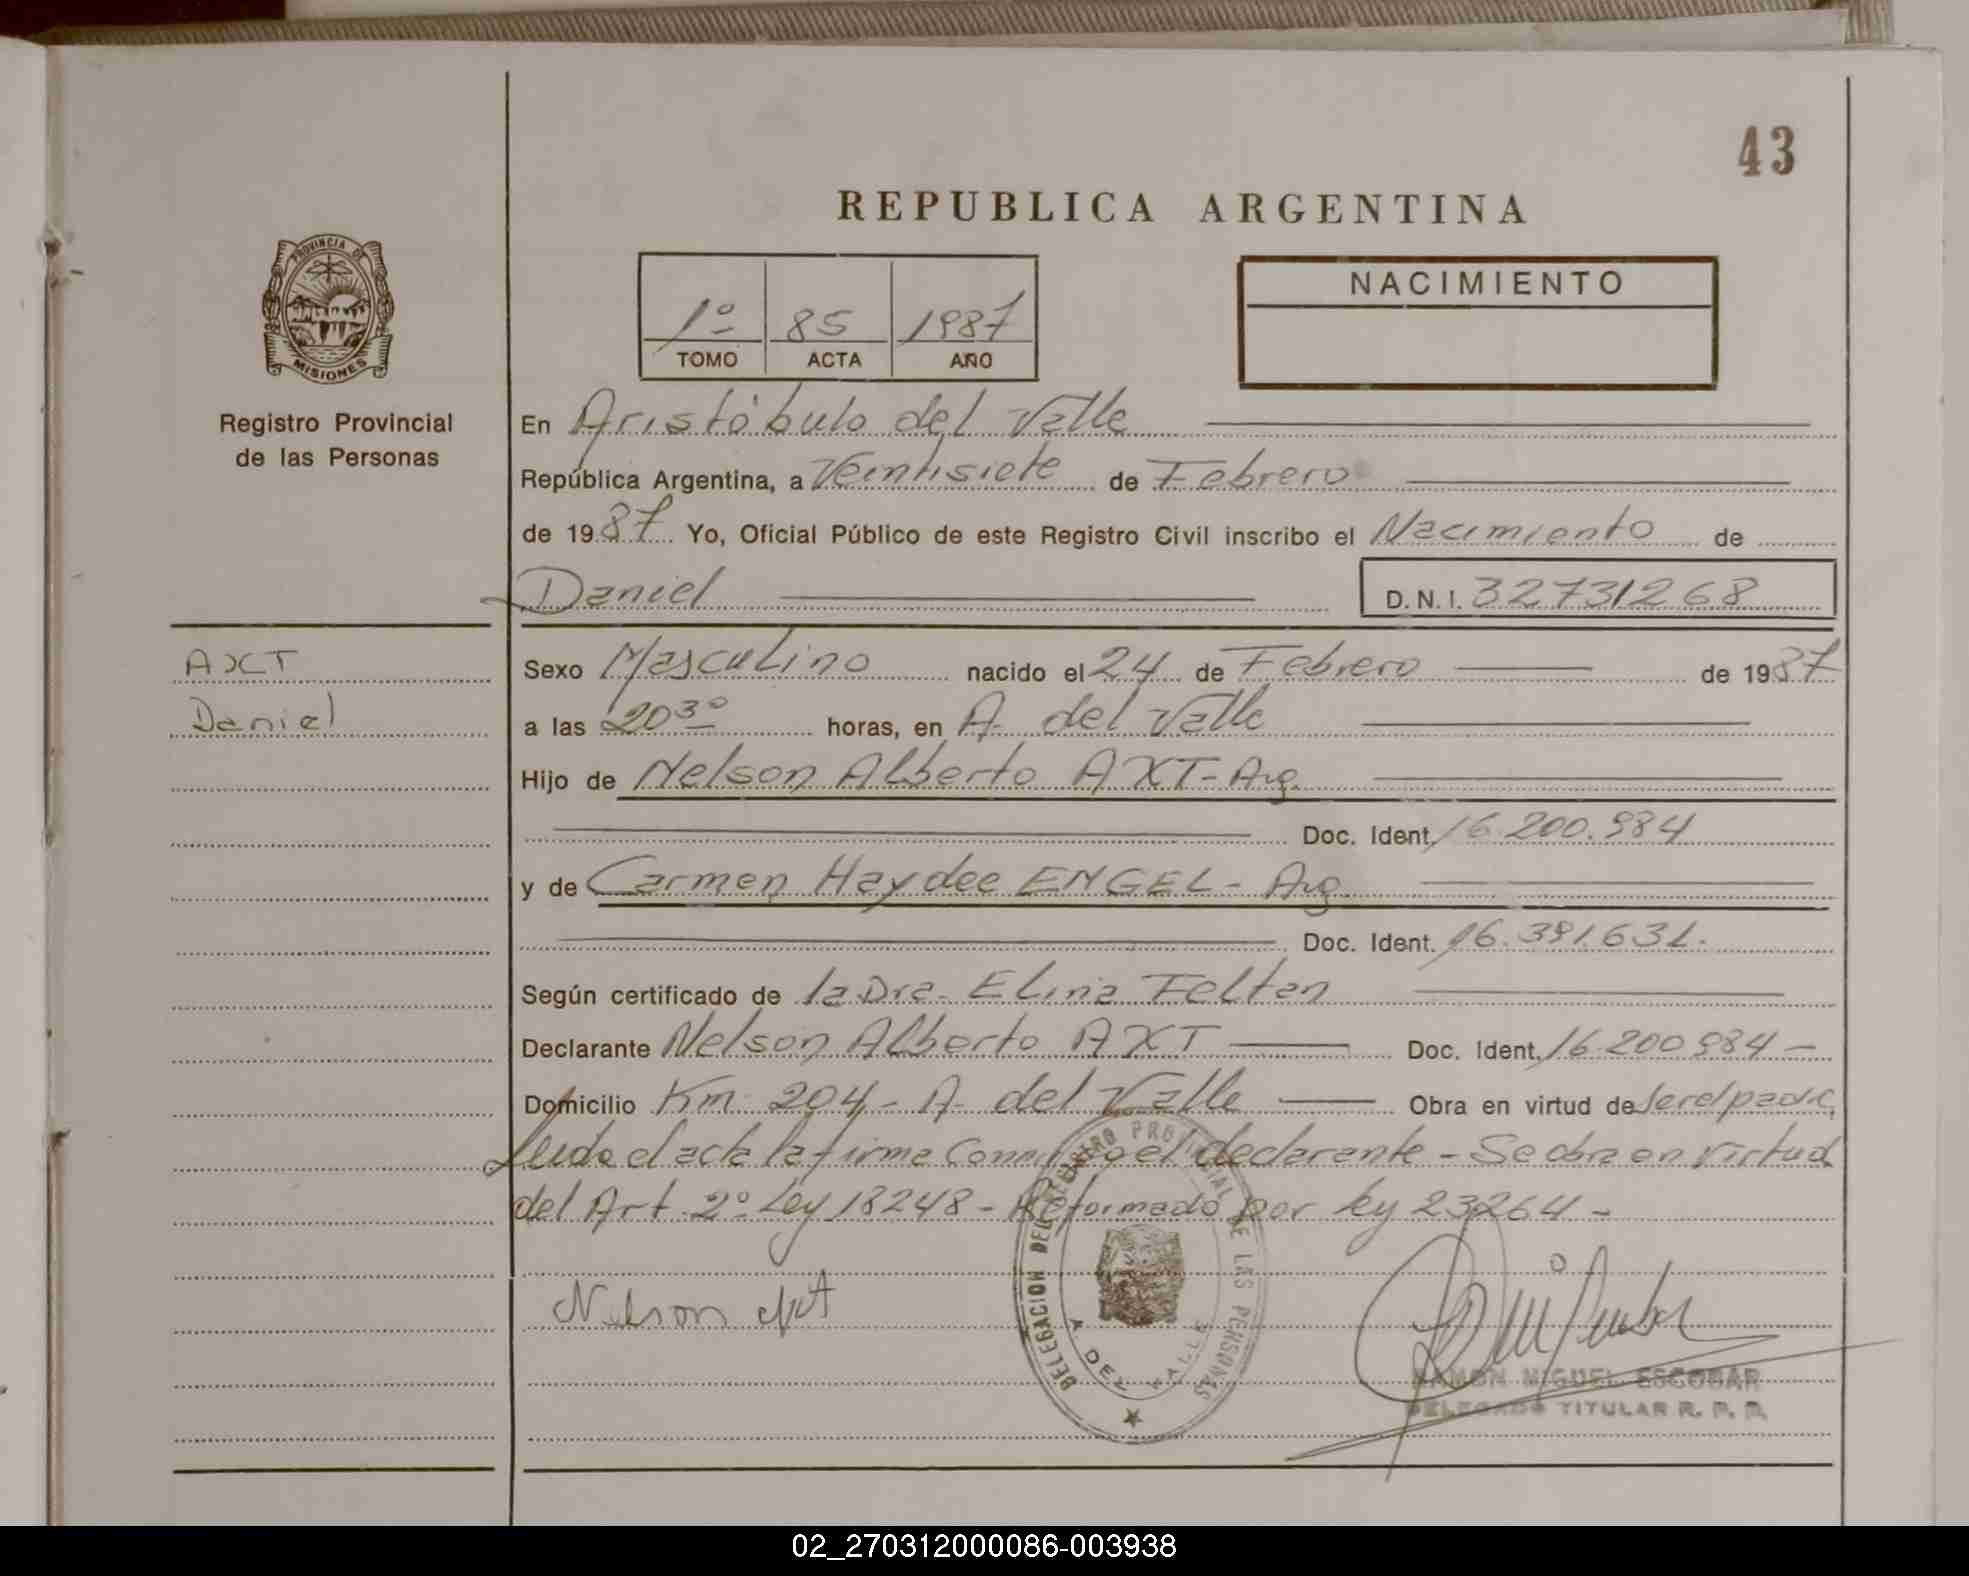 43
REPUBLICA ARGENTINA
PROVINCIA DE
MISIONES
Registro Provincial
de las Personas
1º 85 1987
TOMO ACTA AÑO
NACIMIENTO
En Aristóbulo del Valle
República Argentina, a Veintisiete de Febrero
de 1987 Yo, Oficial Público de este Registro Civil inscribo el Nacimiento de
Daniel D.N.I. 32731268
AXT
Daniel
Sexo Masculino nacido el 24 de Febrero de 1987
a las 20 30 horas, en A. del Valle
Hijo de Nelson Alberto AXT - Arg.
Doc. Ident. 16.200.984
y de Carmen Haydee ENGEL - Arg.
Doc. Ident. 16.391.631.
Según certificado de la Dra. Elina Feltan
Declarante Nelson Alberto AXT Doc. Ident. 16.200984 -
Domicilio Km 204 - A. del Valle Obra en virtud de ser el padre,
Leida el acta la firma Conmigo el declarante - Se obra en virtud
del Art. 2º Ley 18248 - Reformado por ley 23264 -
Nelson Axt
DELEGACION DEL REGISTRO PROVINCIAL DE LAS PERSONAS
A. DEL VALLE
RAMON MIGUEL ESCOBAR
DELEGADO TITULAR R. P. P.
02_270312000086-003938